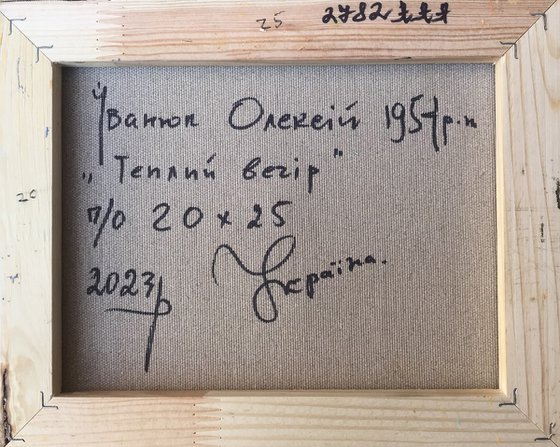 25
2782
Іванюк Олексій 1957 р.н
„Теплий вечір"
п/о 20 x 25
2023р
Україна.
20